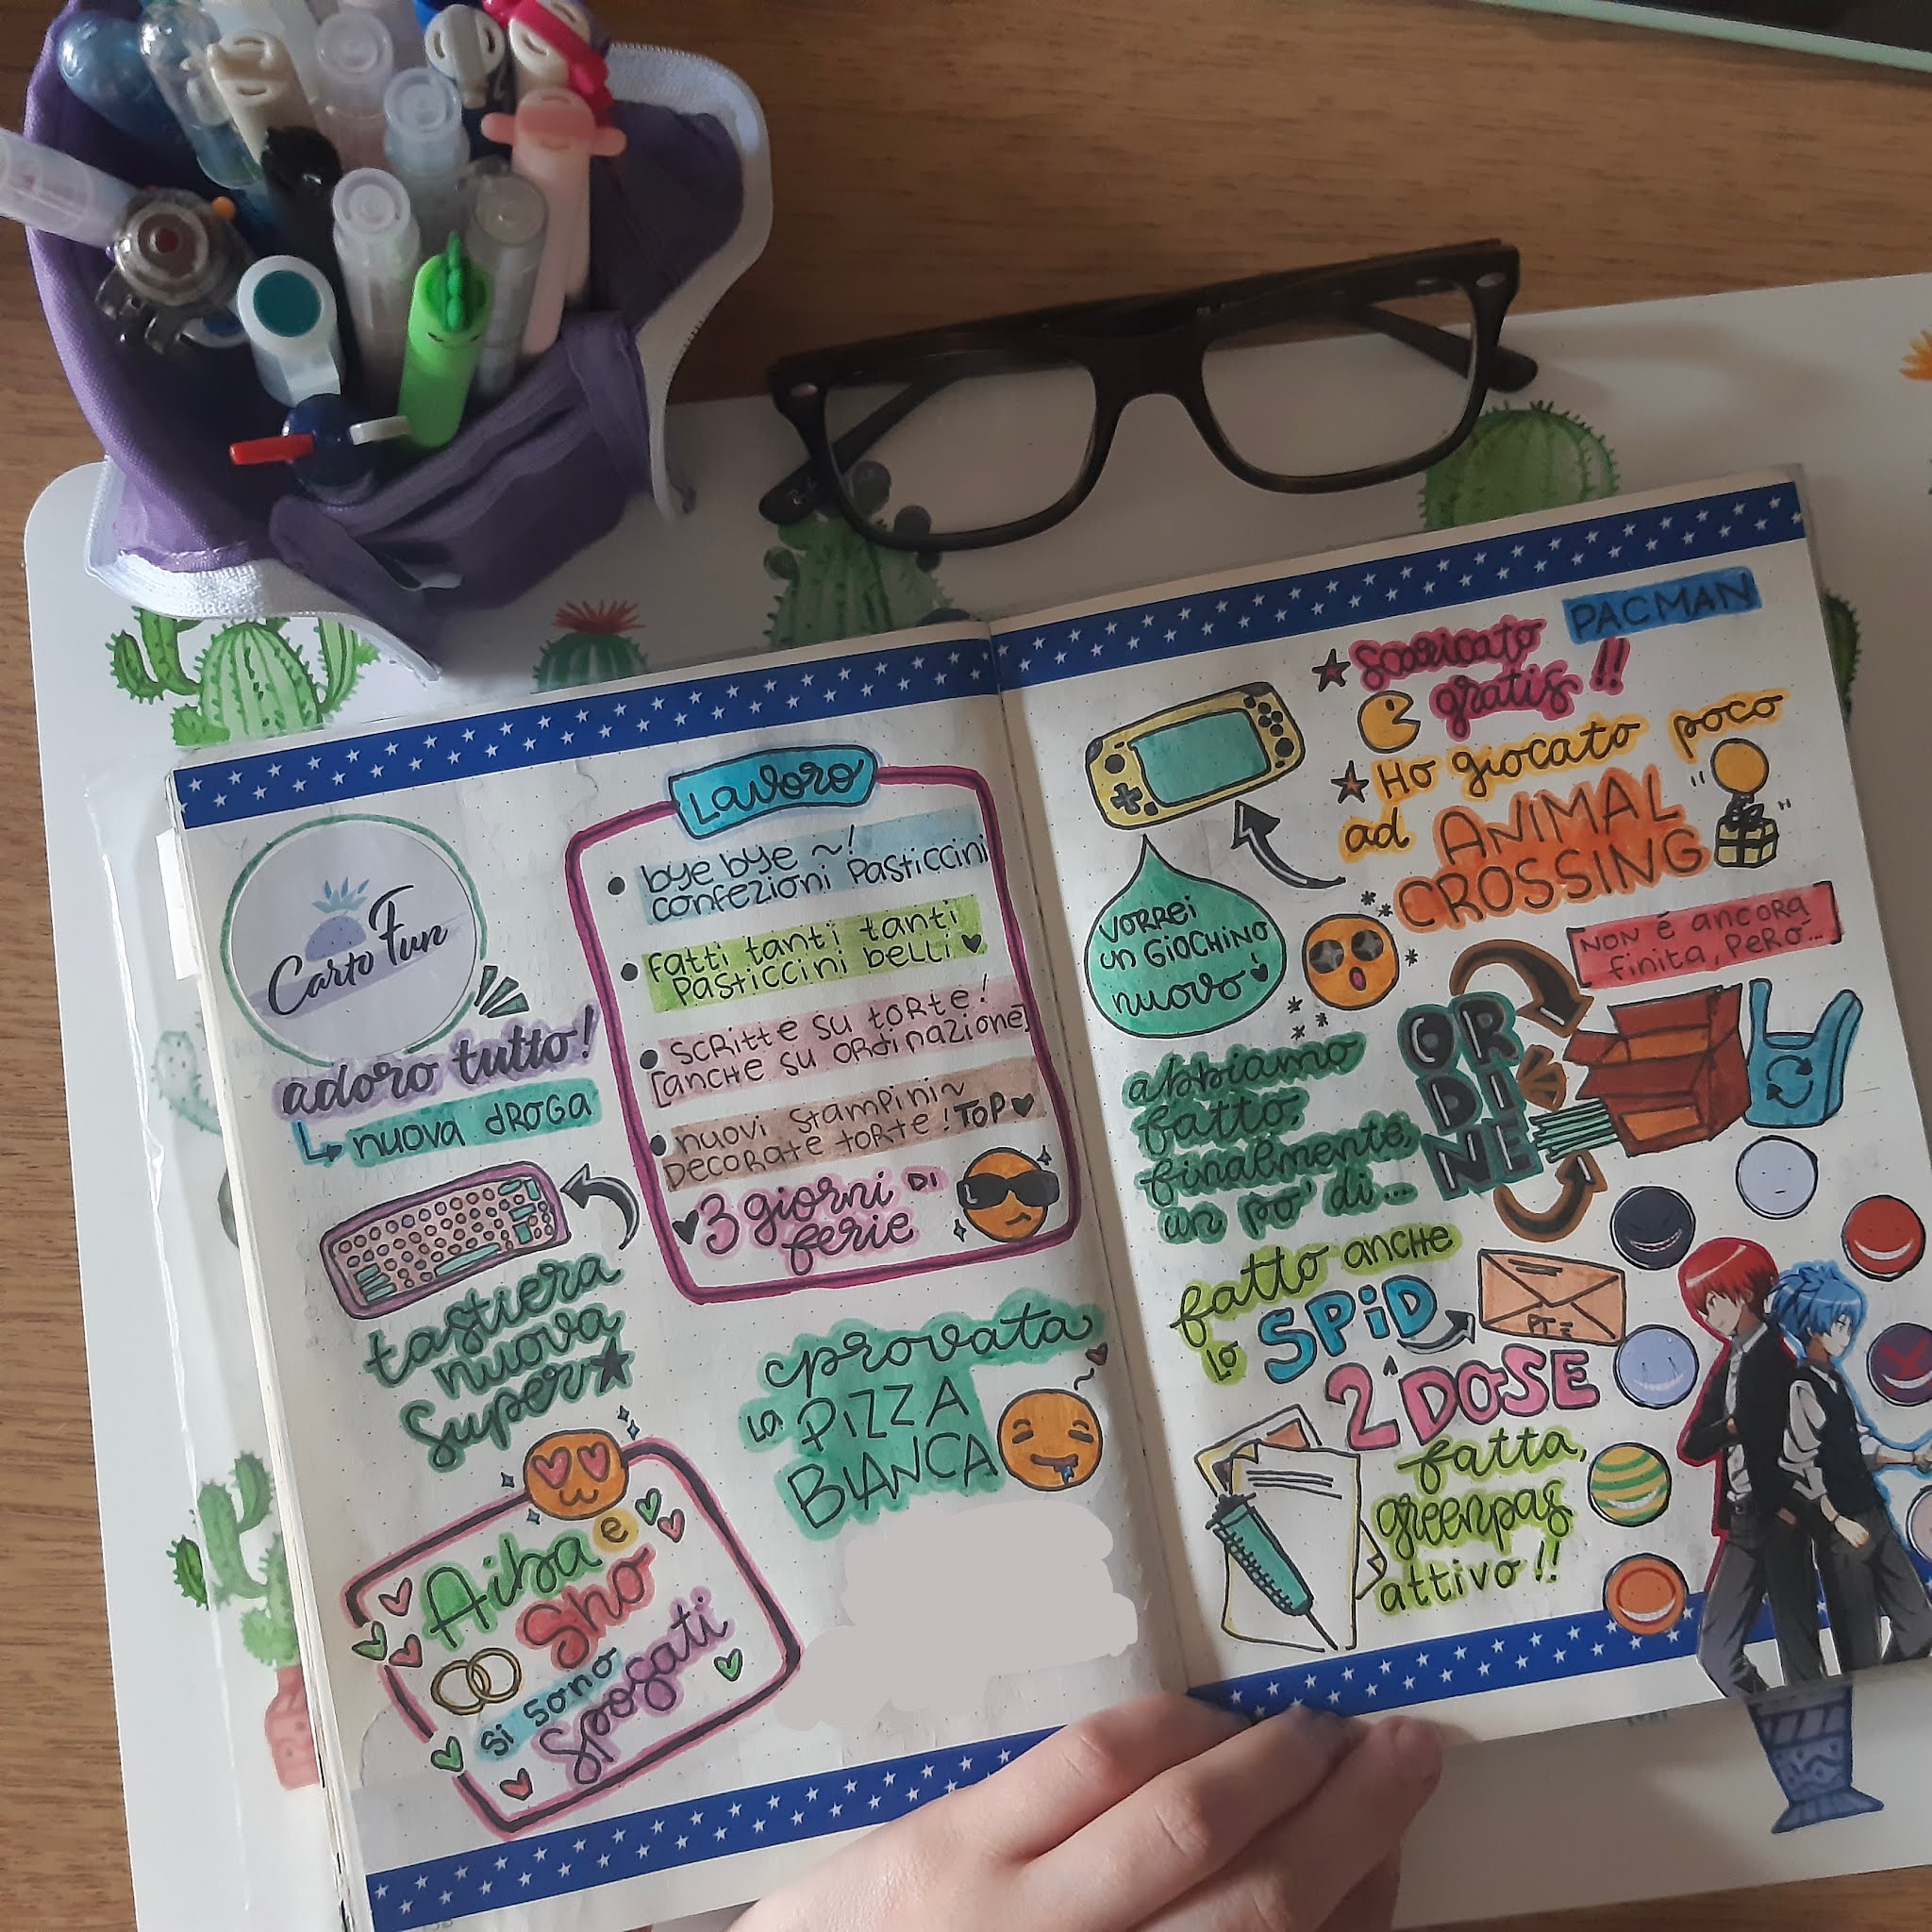 Carto Fun
adoro tutto!
nuova droga
tastiera
nuova
super
Aiba e
Sho
si sono
sposati
Lavoro
bye bye ~!
confezioni Pasticcini
fatti tanti tanti
Pasticcini belli
scritte su torte!
[anche su ordinazione]
nuovi stampini~
Decorate torte! TOP
3 giorni di
ferie
provata
la PIZZA
BIANCA
PACMAN
scaricato
gratis!!
Ho giocato poco
ad ANIMAL
CROSSING
vorrei
un giochino
nuovo
Non è ancora
finita, però...
abbiamo
fatto,
finalmente,
un po' di...
OR
DI
NE
fatto anche
lo SPiD
PT
2ª DOSE
fatta,
greenpas
attivo!!